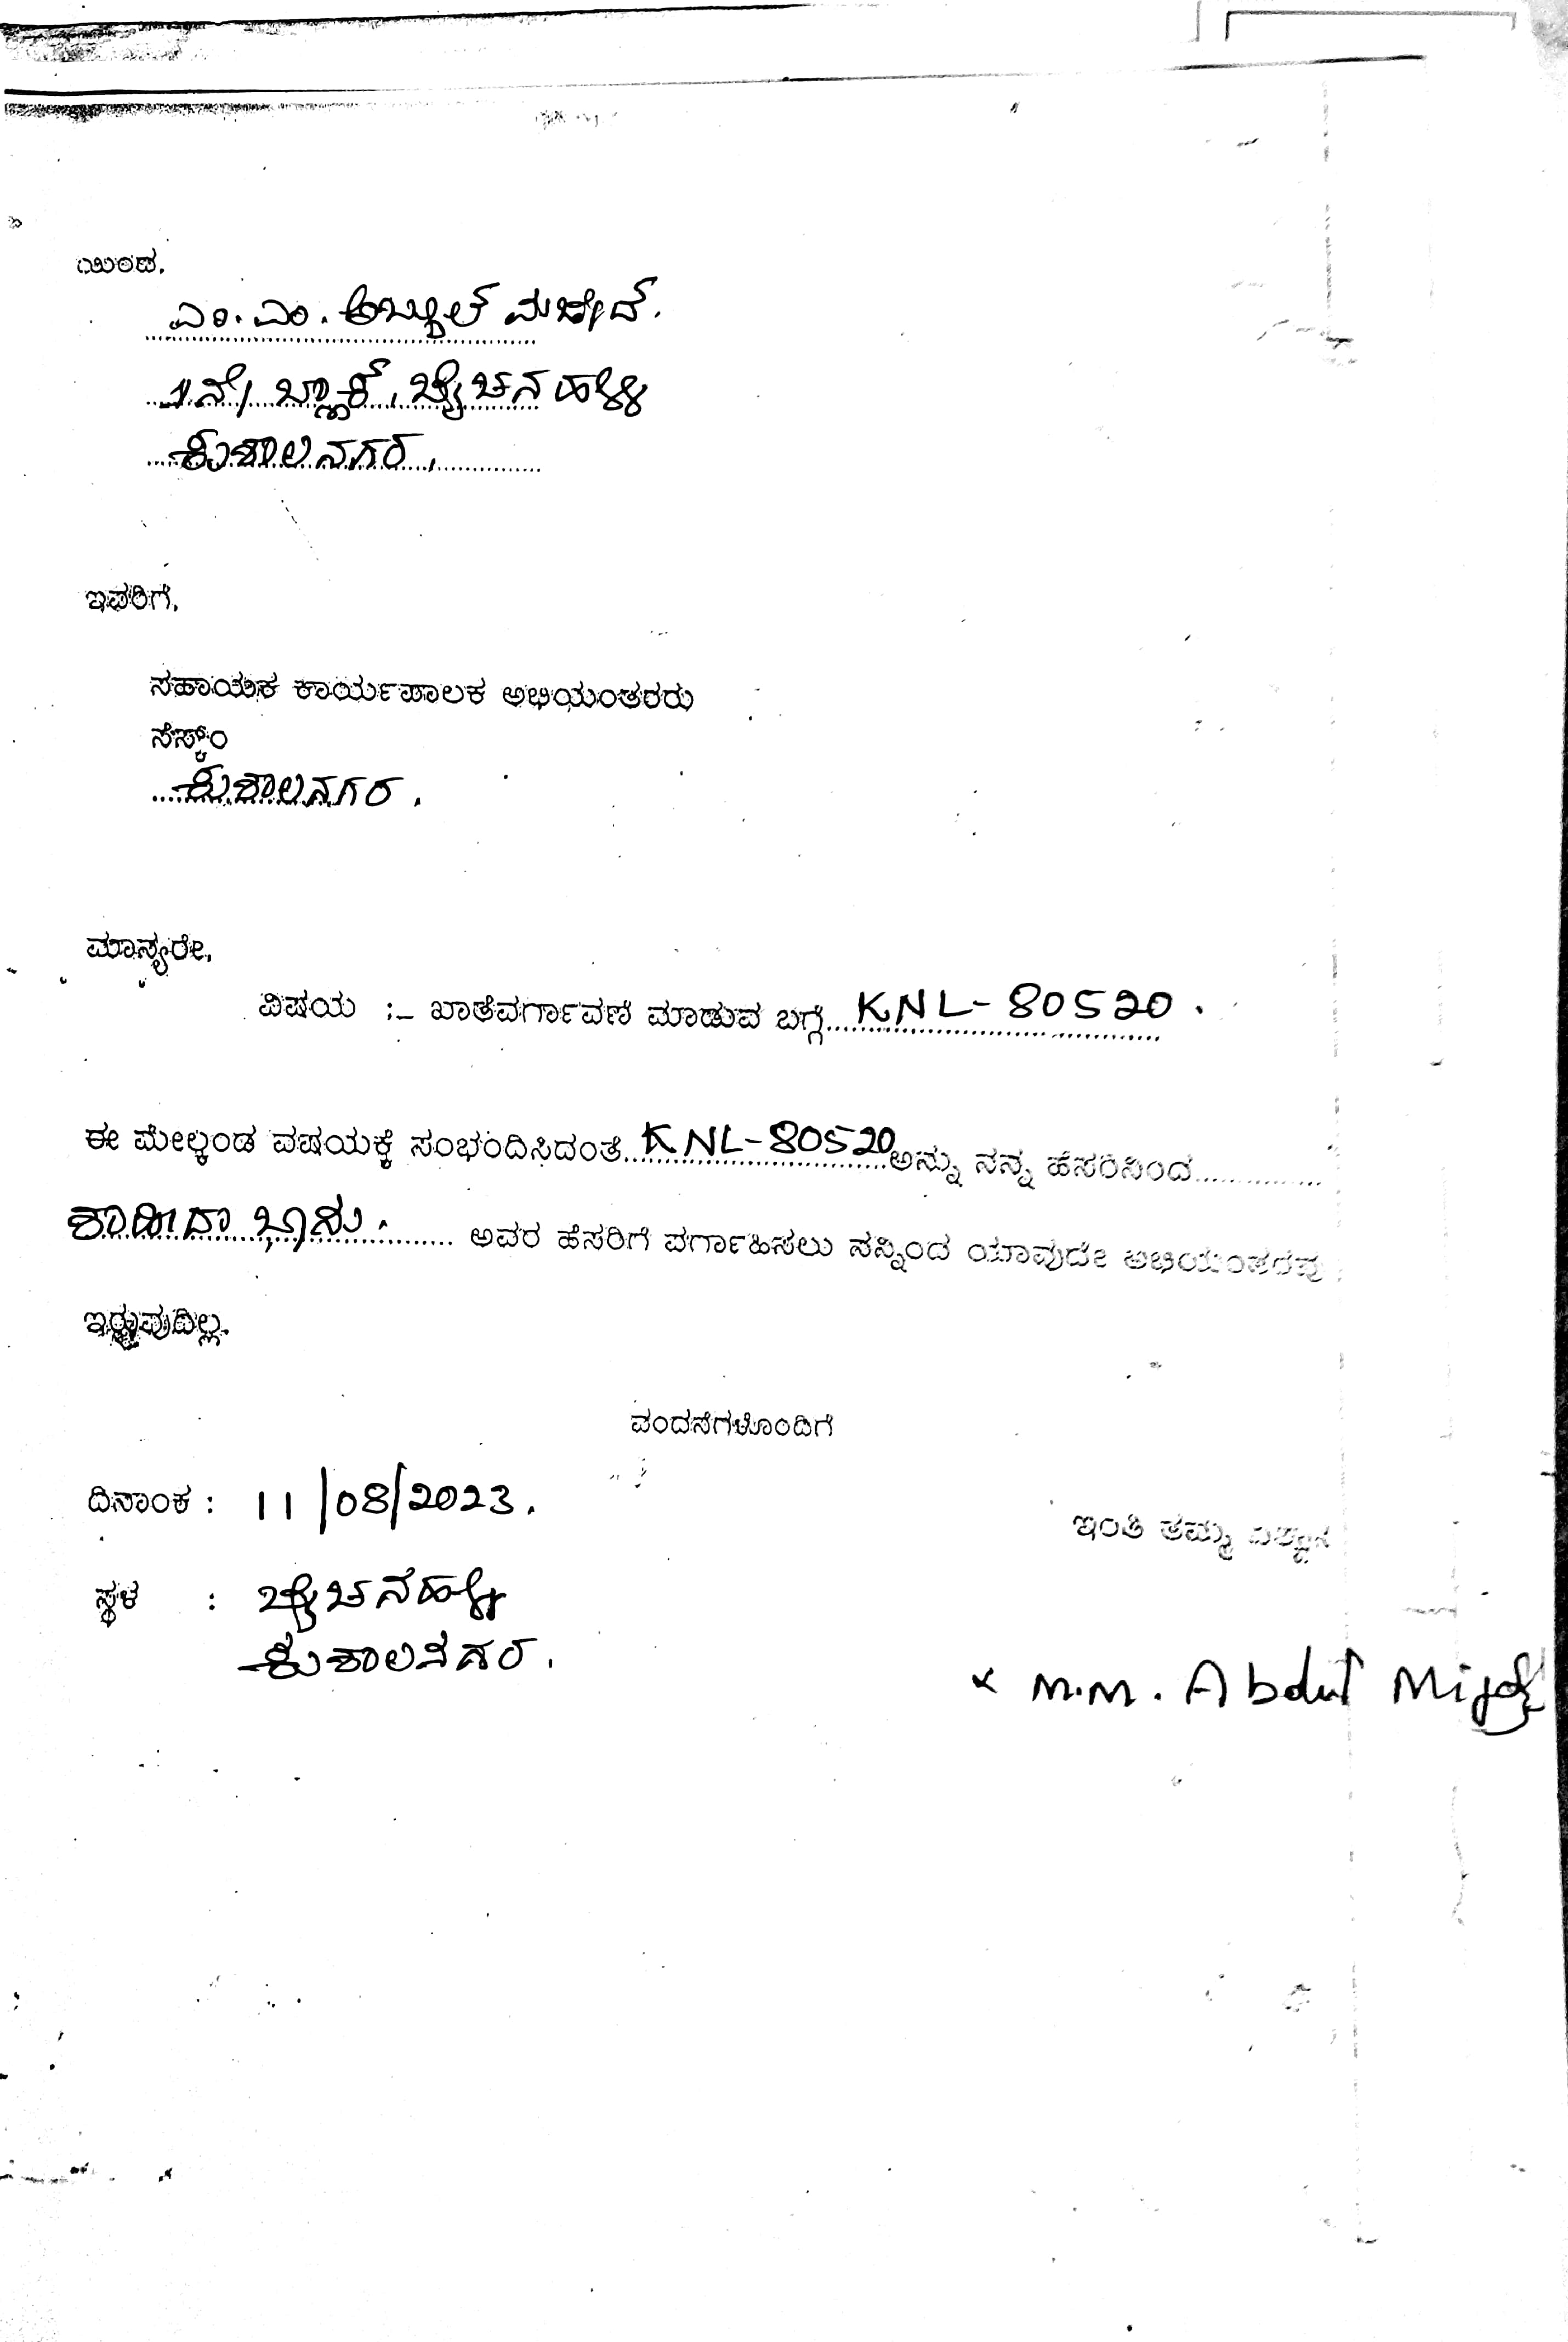 ಯಿಂದ,
ಎಂ. ಎಂ. ಅಬ್ದುಲ್ ಮಜೀದ್.
1ನೇ ಬ್ಲಾಕ್, ಬೈಚನಹಳ್ಳಿ
ಕುಶಾಲನಗರ,
ಇವರಿಗೆ,
ಸಹಾಯಕ ಕಾರ್ಯಪಾಲಕ ಅಭಿಯಂತರರು
ಸೆಸ್ಕ್ಂ
ಕುಶಾಲನಗರ.
ಮಾನ್ಯರೇ,
ವಿಷಯ :- ಖಾತೆವರ್ಗಾವಣೆ ಮಾಡುವ ಬಗ್ಗೆ KNL-80520.
ಈ ಮೇಲ್ಕಂಡ ವಿಷಯಕ್ಕೆ ಸಂಭಂದಿಸಿದಂತೆ KNL-80520 ಅನ್ನು ನನ್ನ ಹೆಸರಿನಿಂದ
ಶಾಹೀದಾ ಭಾನು. ಅವರ ಹೆಸರಿಗೆ ವರ್ಗಾಹಿಸಲು ನನ್ನಿಂದ ಯಾವುದೇ ಅಭಿಯಂತರವು
ಇರುವುದಿಲ್ಲ.
ವಂದನೆಗಳೊಂದಿಗೆ
ದಿನಾಂಕ : 11/08/2023.
ಇಂತಿ ತಮ್ಮ ವಿಶ್ವಾಸಿ
ಸ್ಥಳ : ಬೈಚನಹಳ್ಳಿ
ಕುಶಾಲನಗರ.
x M.M. Abdul Mijed